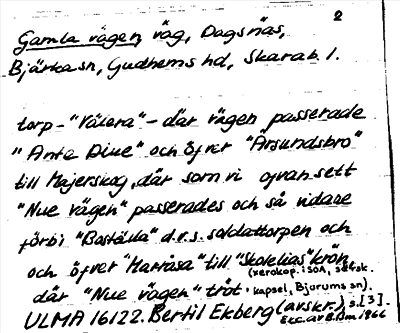 2
Gamla vägen, väg, Dagsnäs,
Bjärka sn, Gudhems hd, Skarab. l.
torp - "Välera" - där vägen passerade
"Ante Diue" och öfver "Årsundsbro"
till Majerskog, där som vi ofvan sett
"Nue vägen" passerades och så vidare
förbi "Boställa" d.v.s. soldattorpen och
och öfver "Marråsa" till "Skolelias" krön
(xerokop. i SOA, särsk.
där "Nue vägen" tröt. kapsel, Bjurums sn).
ULMA 16122. Bertil Ekberg (avskr.) s. [3].
Exc. av B.Bm. 1966